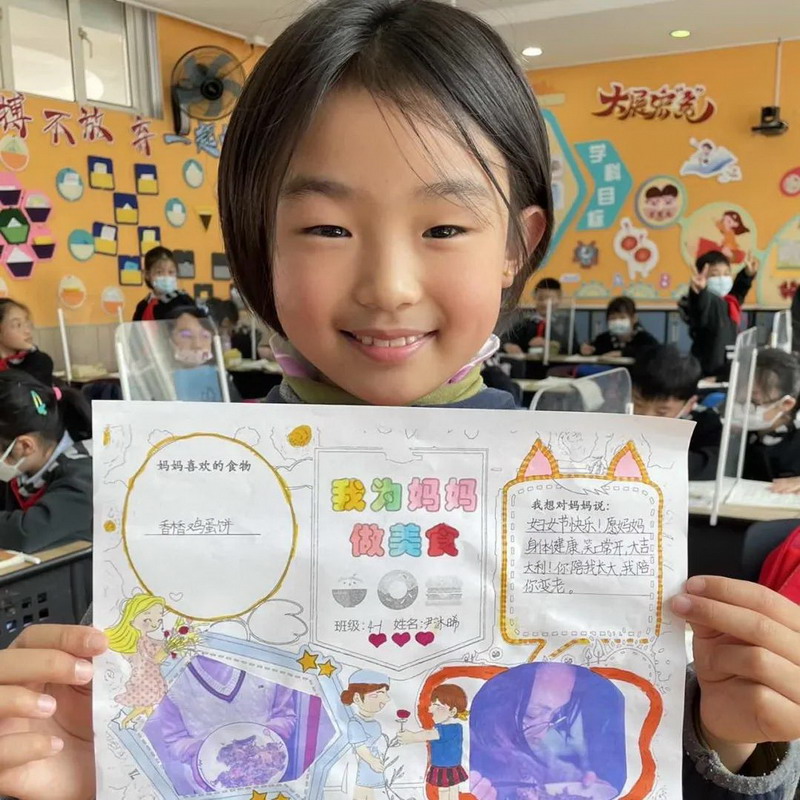 搏不放弃一起
大展宏兔
学科
目标
妈妈喜欢的食物
香香鸡蛋饼
我为妈妈
做美食
班级:4-1 姓名:尹沐晞
我想对妈妈说:
妇女节快乐!愿妈妈
身体健康,笑口常开,大吉
大利!你陪我长大,我陪
你变老。